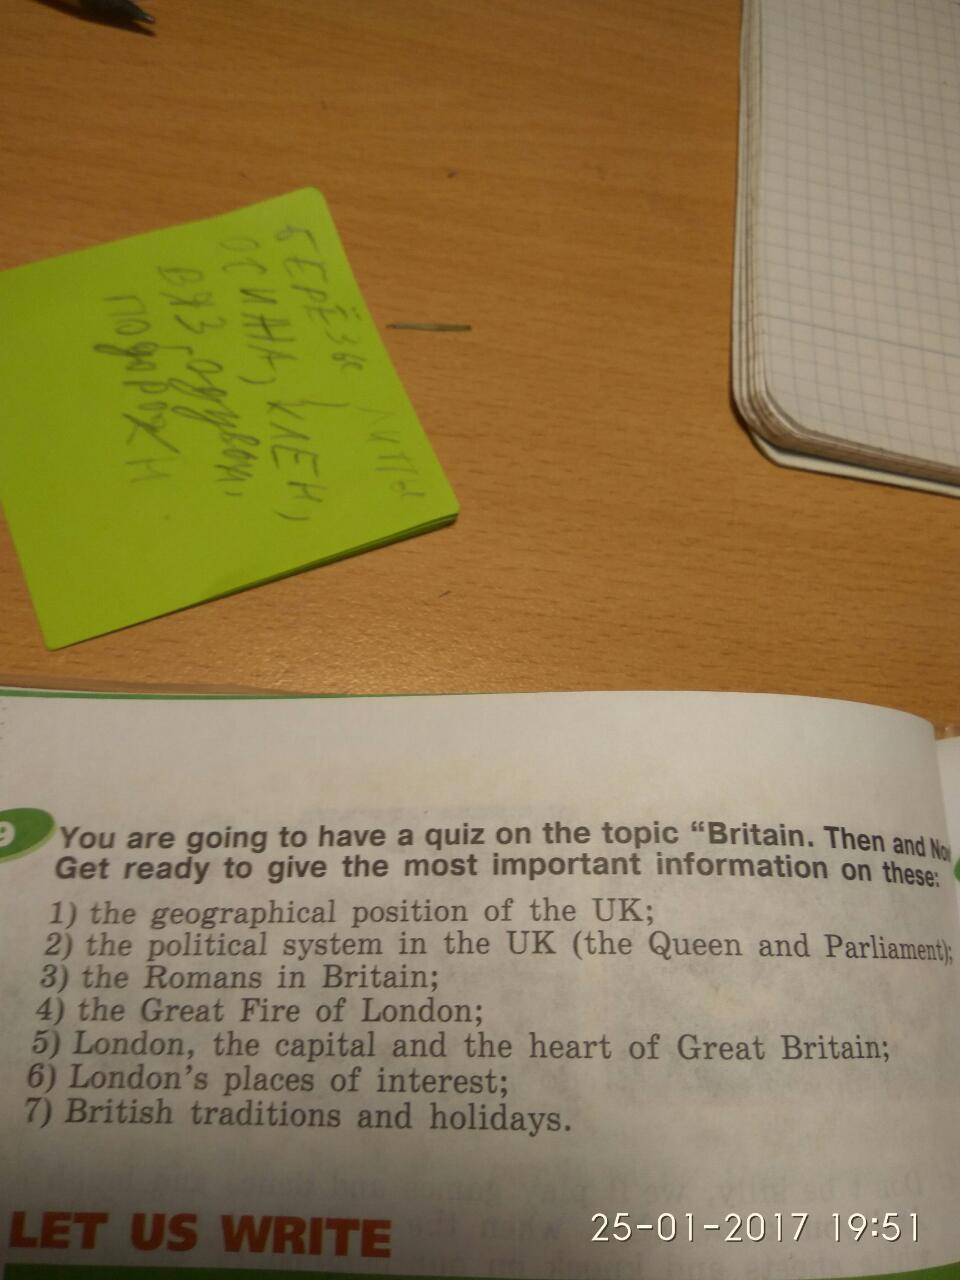 берёзы
липы
осина, клен,
вяз, одуван,
подорожн
9
You are going to have a quiz on the topic “Britain. Then and Now
Get ready to give the most important information on these:
1) the geographical position of the UK;
2) the political system in the UK (the Queen and Parliament);
3) the Romans in Britain;
4) the Great Fire of London;
5) London, the capital and the heart of Great Britain;
6) London’s places of interest;
7) British traditions and holidays.
LET US WRITE
25-01-2017 19:51